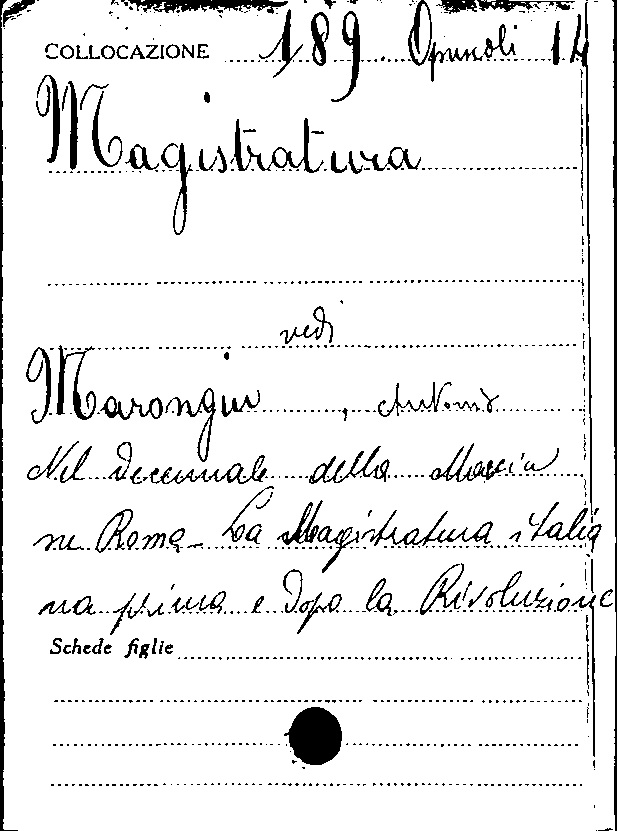 COLLOCAZIONE 189 Opuscoli 14
Magistratura
vedi
Marongiu, Antonio
Nel Decennale della Marcia
su Roma - La Magistratura italia
na prima e dopo la Rivoluzione
Schede figlie